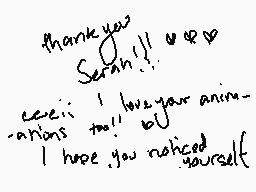 thank you
Serah!!! ♥♥♥
eeeii I love your anim-
-ations too!!
I hope you noticed
yourself